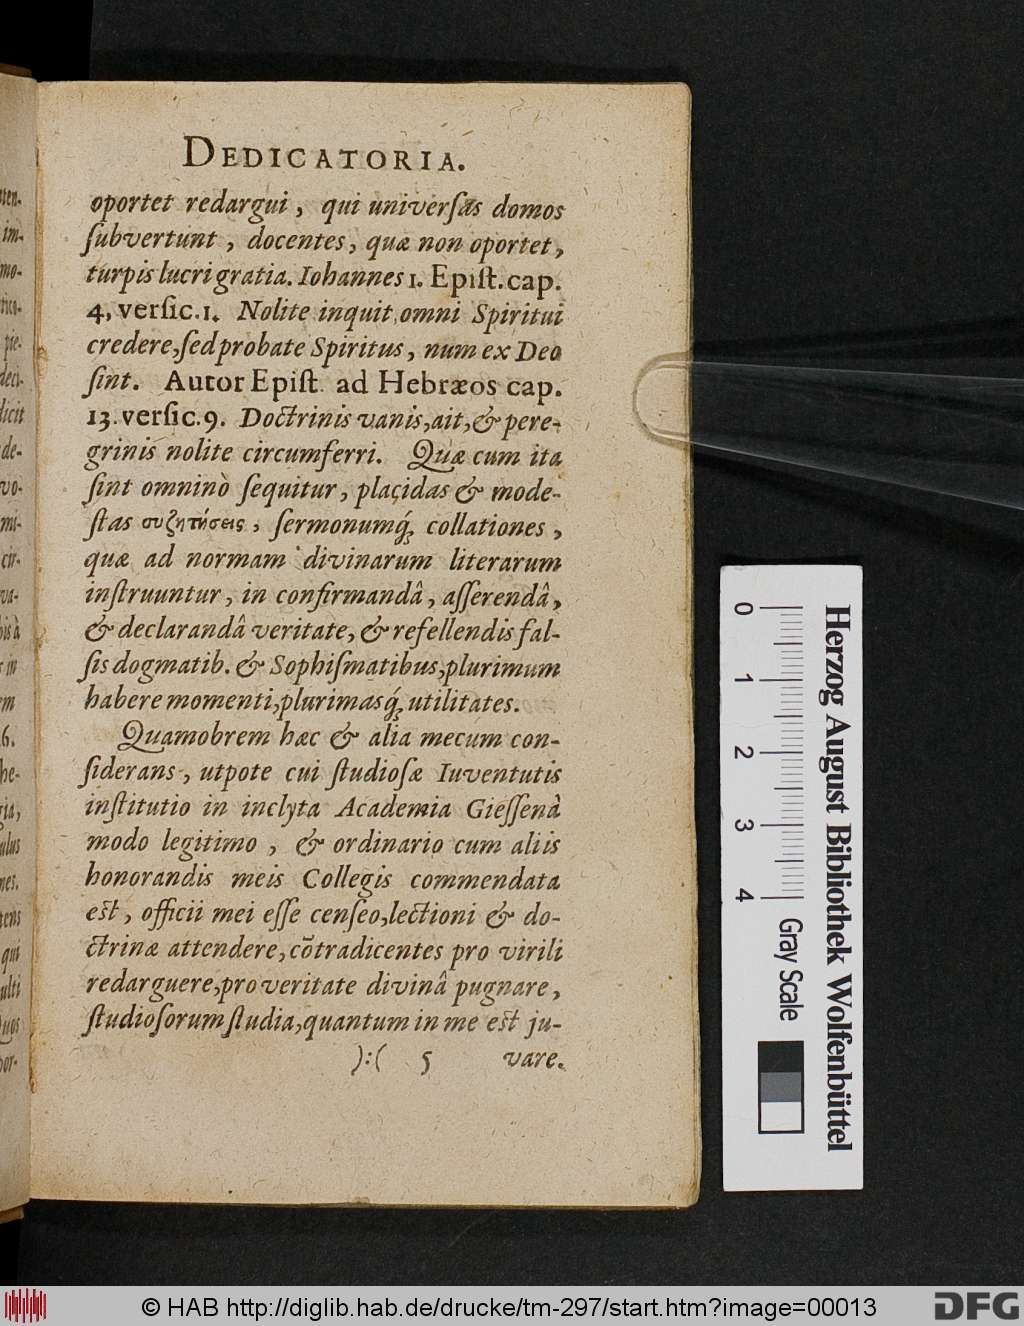 DEDICATORIA.
oportet redargui, qui universas domos
ſubvertunt, docentes, quæ non oportet,
turpis lucri gratia. Iohannes 1. Epiſt. cap.
4, verſic. 1. Nolite inquit, omni Spiritui
credere, ſed probate Spiritus, num ex Deo
ſint. Autor Epiſt. ad Hebræos cap.
13. verſic. 9. Doctrinis vanis, ait, & pere-
grinis nolite circumferri. Quæ cum ita
ſint omninò ſequitur, placidas & mode-
ſtas συζητήσεις, ſermonumq́; collationes,
quæ ad normam divinarum literarum
inſtruuntur, in confirmandâ, aſſerendâ,
& declarandâ veritate, & refellendis fal-
ſis dogmatib. & Sophiſmatibus, plurimum
habere momenti, plurimasq́; utilitates.
Quamobrem hæc & alia mecum con-
ſiderans, utpote cui ſtudioſæ Iuventutis
inſtitutio in inclyta Academia Gieſſenâ
modo legitimo, & ordinario cum aliis
honorandis meis Collegis commendata
eſt, officii mei eſſe cenſeo, lectioni & do-
ctrinæ attendere, cõtradicentes pro virili
redarguere, pro veritate divinâ pugnare,
ſtudioſorum ſtudia, quantum in me eſt ju-
):( 5 vare.
ten-
im-
mo-
tico-
pie-
deci-
dicit
de-
vo-
mi-
cir-
va-
bis à
in
em
6.
he-
gia,
ulus
nes.
tens
qui
ulti
Quos
por-
0 1 2 3 4
Herzog August Bibliothek Wolfenbüttel
Gray Scale
© HAB http://diglib.hab.de/drucke/tm-297/start.htm?image=00013
DFG